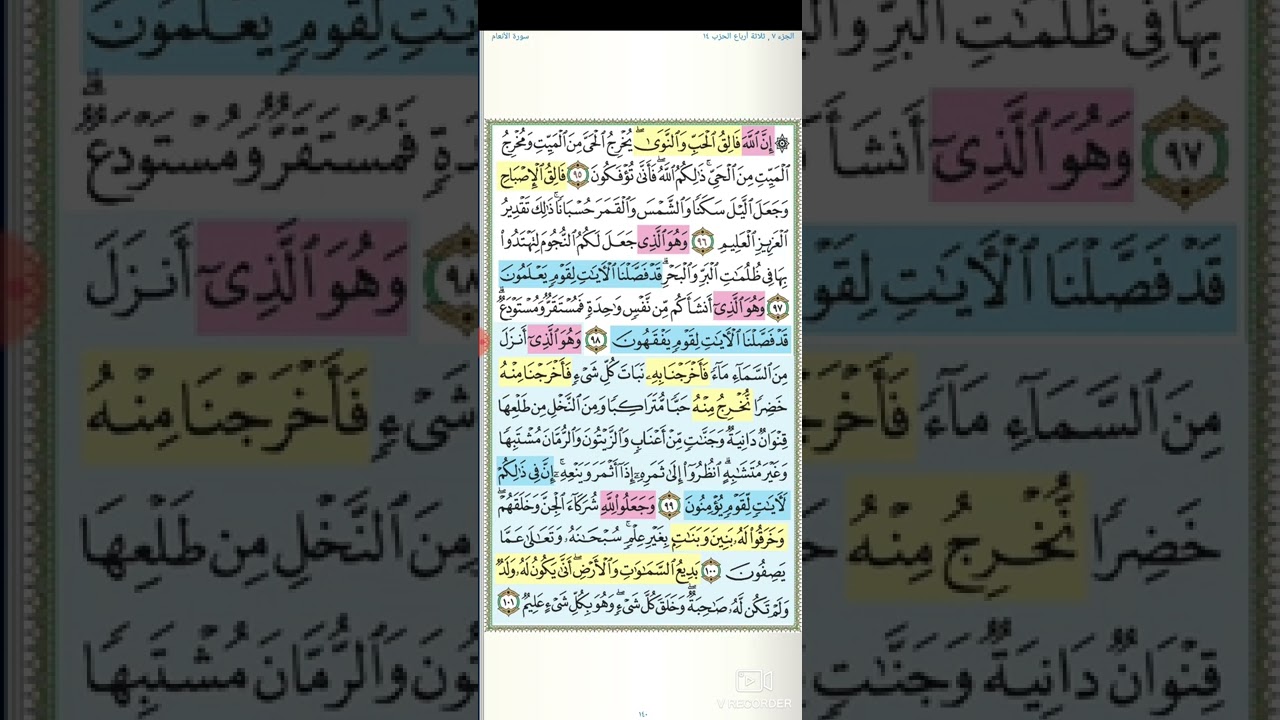 الجزء ٧ , ثلاثة أرباع الحزب ١٤
سورة الأنعام
۞ إِنَّ ٱللَّهَ فَالِقُ ٱلْحَبِّ وَٱلنَّوَىٰ ۖ يُخْرِجُ ٱلْحَىَّ مِنَ ٱلْمَيِّتِ وَمُخْرِجُ
ٱلْمَيِّتِ مِنَ ٱلْحَىِّ ۚ ذَٰلِكُمُ ٱللَّهُ ۖ فَأَنَّىٰ تُؤْفَكُونَ ٩٥ فَالِقُ ٱلْإِصْبَاحِ
وَجَعَلَ ٱلَّيْلَ سَكَنًا وَٱلشَّمْسَ وَٱلْقَمَرَ حُسْبَانًا ۚ ذَٰلِكَ تَقْدِيرُ
ٱلْعَزِيزِ ٱلْعَلِيمِ ٩٦ وَهُوَ ٱلَّذِى جَعَلَ لَكُمُ ٱلنُّجُومَ لِتَهْتَدُوا۟
بِهَا فِى ظُلُمَٰتِ ٱلْبَرِّ وَٱلْبَحْرِ ۗ قَدْ فَصَّلْنَا ٱلْءَايَٰتِ لِقَوْمٍ يَعْلَمُونَ
٩٧ وَهُوَ ٱلَّذِىٓ أَنشَأَكُم مِّن نَّفْسٍ وَٰحِدَةٍ فَمُسْتَقَرٌّ وَمُسْتَوْدَعٌ ۗ
قَدْ فَصَّلْنَا ٱلْءَايَٰتِ لِقَوْمٍ يَفْقَهُونَ ٩٨ وَهُوَ ٱلَّذِىٓ أَنزَلَ
مِنَ ٱلسَّمَآءِ مَآءً فَأَخْرَجْنَا بِهِۦ نَبَاتَ كُلِّ شَىْءٍ فَأَخْرَجْنَا مِنْهُ
خَضِرًا نُّخْرِجُ مِنْهُ حَبًّا مُّتَرَاكِبًا وَمِنَ ٱلنَّخْلِ مِن طَلْعِهَا
قِنْوَانٌ دَانِيَةٌ وَجَنَّٰتٍ مِّنْ أَعْنَابٍ وَٱلزَّيْتُونَ وَٱلرُّمَّانَ مُشْتَبِهًا
وَغَيْرَ مُتَشَٰبِهٍ ۗ ٱنظُرُوٓا۟ إِلَىٰ ثَمَرِهِۦٓ إِذَآ أَثْمَرَ وَيَنْعِهِۦٓ ۚ إِنَّ فِى ذَٰلِكُمْ
لَءَايَٰتٍ لِّقَوْمٍ يُؤْمِنُونَ ٩٩ وَجَعَلُوا۟ لِلَّهِ شُرَكَآءَ ٱلْجِنَّ وَخَلَقَهُمْ ۖ
وَخَرَقُوا۟ لَهُۥ بَنِينَ وَبَنَٰتٍۭ بِغَيْرِ عِلْمٍ ۚ سُبْحَٰنَهُۥ وَتَعَٰلَىٰ عَمَّا
يَصِفُونَ ١٠٠ بَدِيعُ ٱلسَّمَٰوَٰتِ وَٱلْأَرْضِ ۖ أَنَّىٰ يَكُونُ لَهُۥ وَلَدٌ
وَلَمْ تَكُن لَّهُۥ صَٰحِبَةٌ ۖ وَخَلَقَ كُلَّ شَىْءٍ ۖ وَهُوَ بِكُلِّ شَىْءٍ عَلِيمٌ ١٠١
V RECORDER
١٤٠